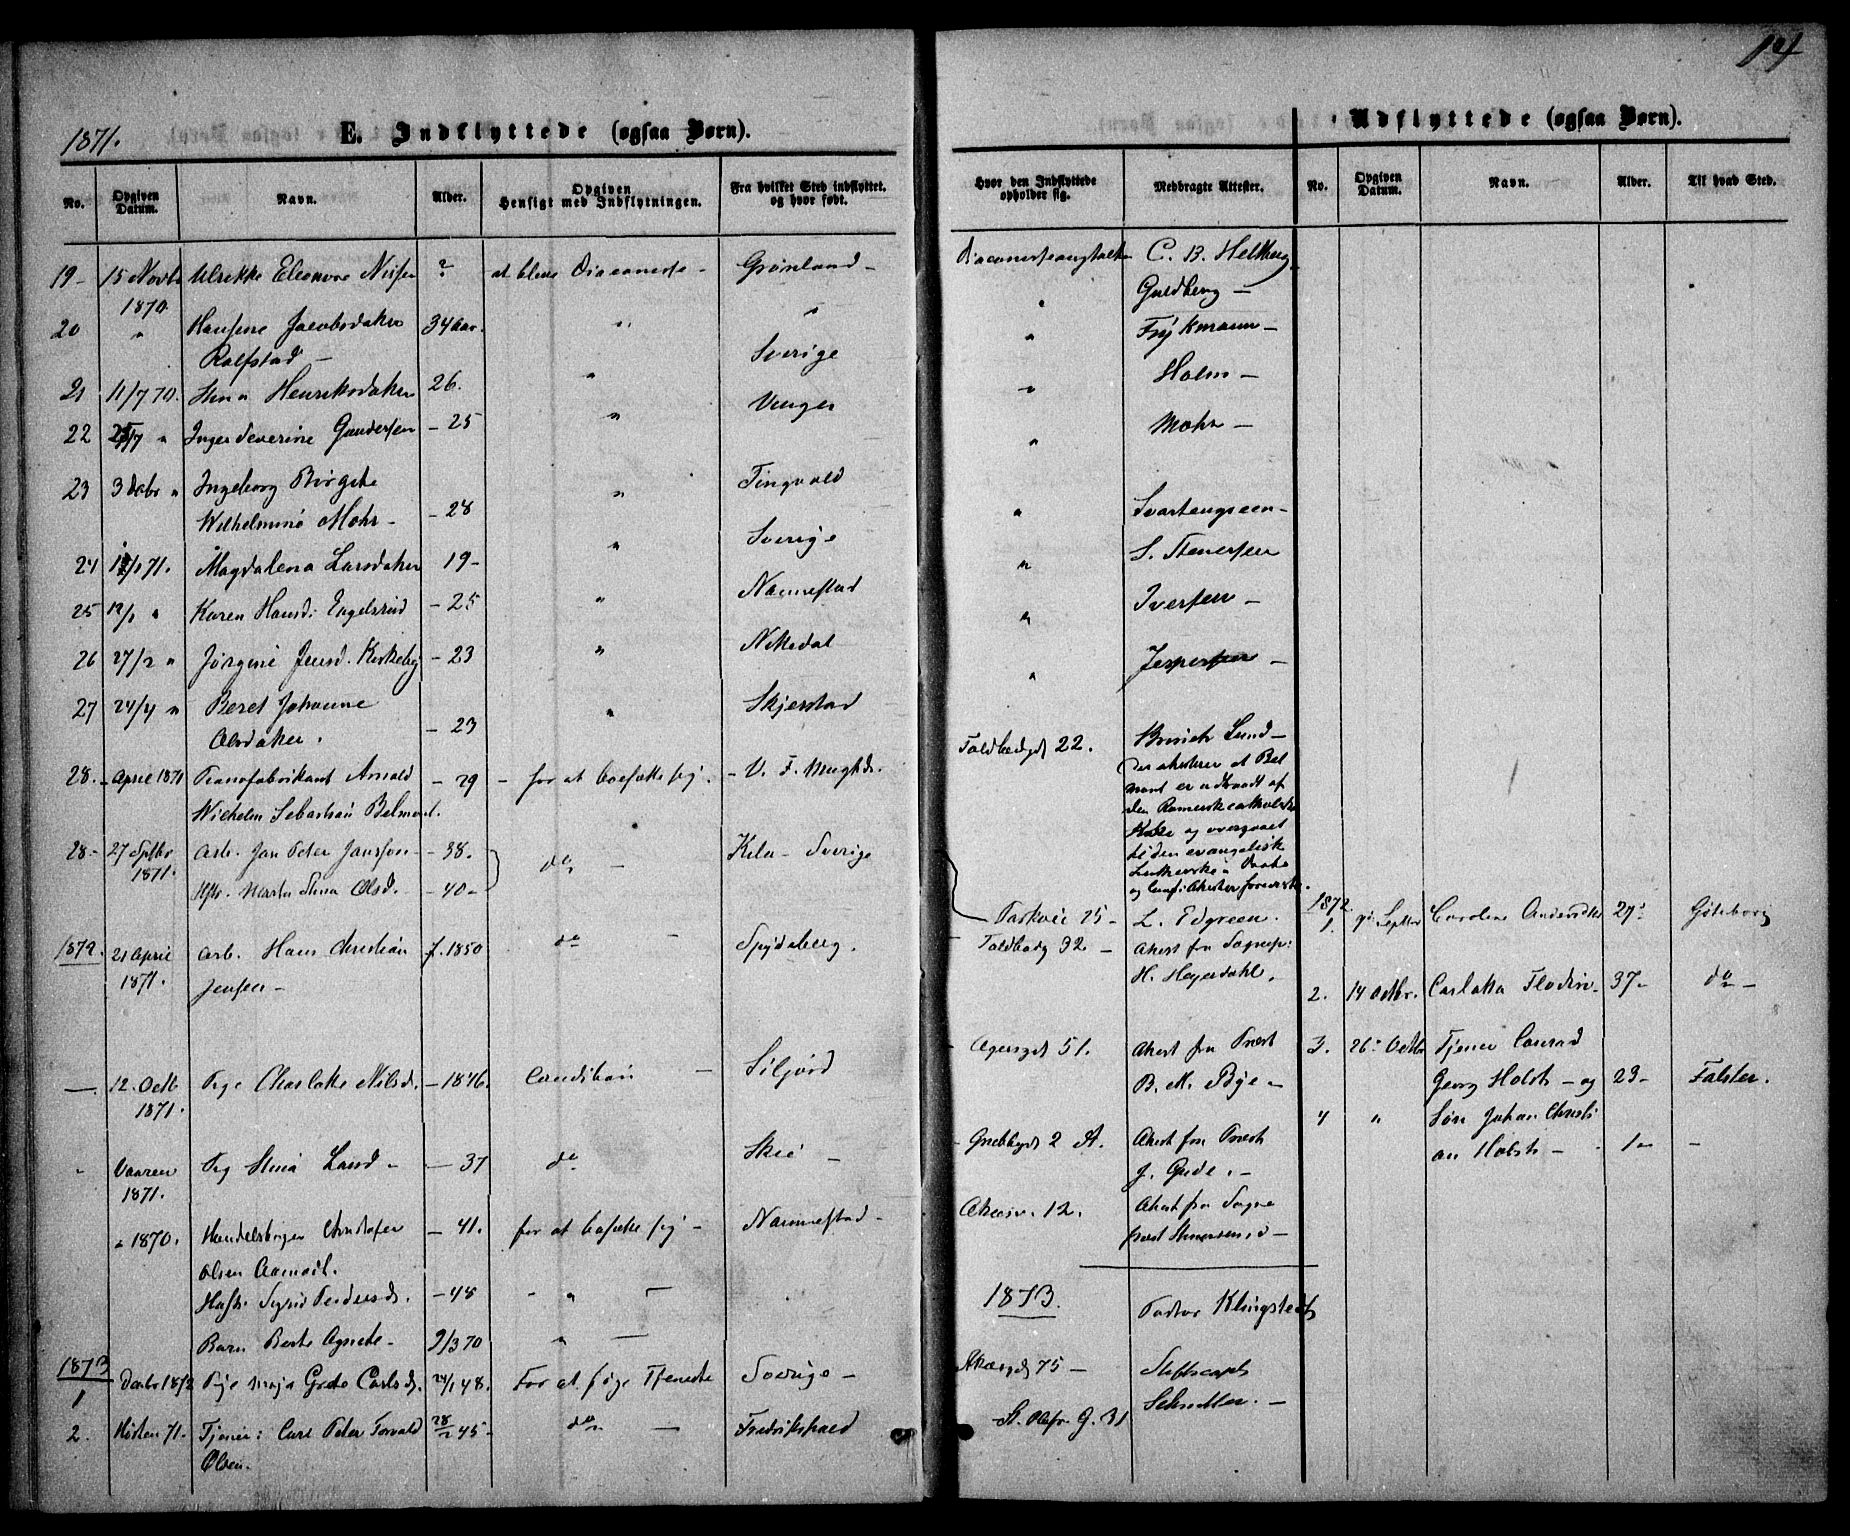 14
1871.
E. Indflyttede (ogsaa Børn).
Udflyttede (ogsaa Børn).
No. Opgiven Datum. Navn. Alder. Opgiven Hensigt med Indflytningen. Fra hvilket Sted indflyttet. og hvor født.
Hvor den Indflyttede opholder sig. Medbragte Attester. No. Opgiven Datum. Navn. Alder. Til hvad Sted.
19- 15 Novbr 1870 Ulrikke Eleonore ? at blive Grønland-
C. B. Heltberg
Guldberg -
20 " Jacobsdatter 34 Aar. " "
Rolfstad -
" Frykmann -
21 11/7 70. Stina Henriksdatter 26. " Sverige
" Holm -
22 25/7 " Inger Severine Gundersen - 25 " Venger
" Mohr -
23 3 Decbr " Ingeborg Birgite
Wilhelmine Mohr - - 28 " Tingvold
" Svartengreen -
24 /1 71. Magdalena Larsdatter 19- " Sverige
" S. Stenersen
25 19/1 " Karen Hansd: Engelsrud - 25 " Nannestad
" Iversen -
26 27/2 " Jørgine Jensd. Kirkeby - 23 " Nittedal
" Jespersen -
27 24/4 " Beret Johanne
Olsdatter. - 23 " Skjerstad
Lund -
28. - April 1871 Pianofabrikant Arnold - 29 - for at bosætte sig. - V. F.
Wilhelm Sebastian Belmont.
Toldbodgd 22.
at Belmont er udtraadt af
den Romersk catholske
Kirke og overgaaet
til den evangelisk
Lutherske
28- 27 Septbr 1871. Arb. Jan Peter Jansson - - 38. do - Kila - Sverige
Hstr. Marta Stina Olsd. - 40-
Parkvei 25- L. Edgreen.
1872. 21 April 1871. Arb. Hans Christian f. 1850 do - Spydeberg.
Jensen -
Toldbodg 32. - Attest fra Sognepr:
H. Heyerdahl.
- 12. Octb 1871. Pige Charlotte Nilsd. - 1846. Condition - Siljord
Agersgd 51. Attest fra Præst
B. M. Bye -
" Vaaren 1871. Pig Stina Lund - - 37 do Skie -
2 St. Attest fra Præst
J. Gude. -
" 1870. Handelsborger Christofer - 41. for at bosætte sig - Nannestad -
Olsen Aamodt.
Akersv. 12. Attest fra Sogne
præst Stenersen. -
Hustr. Sigrid Pedersd. - 48 - " -
Barn Berte Agnete - 9/3 70 " -
1873
1 Decbr 1872 Pige Maja Greta Carlsd. 24/1 48. For at søge Tjeneste Sverige -
1873. Pastor Klingstedt
Akersgd 75 - Stiftscapl.
2. Høsten 71. Tjener: Carl Peter Torvald 28/2 45- do - Fredrikshald
Olsen.
St. Olafs G. 31 Schudter. -
1872.
1. 9de Septbr Caroline Andersdtr 27- Göteborg
2. 14 Octbr. Carlotta Flodin - 37- do -
3. 26- Octbr Tjener Conrad
Georg Holst - og 23- Falster.
4 " Søn Johan Christi
an Holst - 1- -